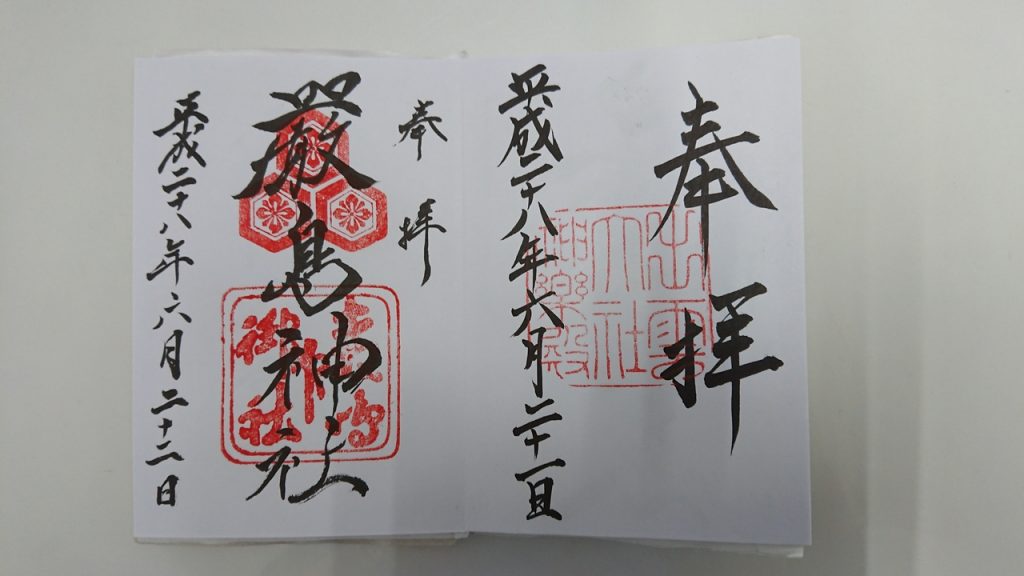 奉拝
出雲
大社
神楽殿
平成二十八年六月二十一日
奉拝
嚴島神社
平成二十八年六月二十二日